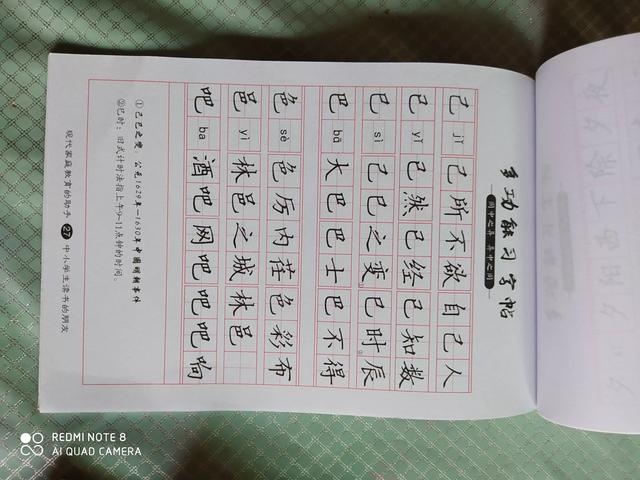 多功能习字帖
同中之异 异中之同
己 jǐ 己所不欲自己人
已 yǐ 已然已经已知数
巳 sì 己巳之变①巳时②辰
巴 bā 大巴巴士巴不得
色 sè 色厉内荏色彩布
邑 yì 林邑之城林邑
吧 ba 酒吧网吧吧吧响
①己巳之变,公元1629年—1630年中国明朝事件
②巳时:旧式计时法指上午9-11点钟的时间。
现代家庭教育的助手 27 中小学生读书的朋友
REDMI NOTE 8
AI QUAD CAMERA